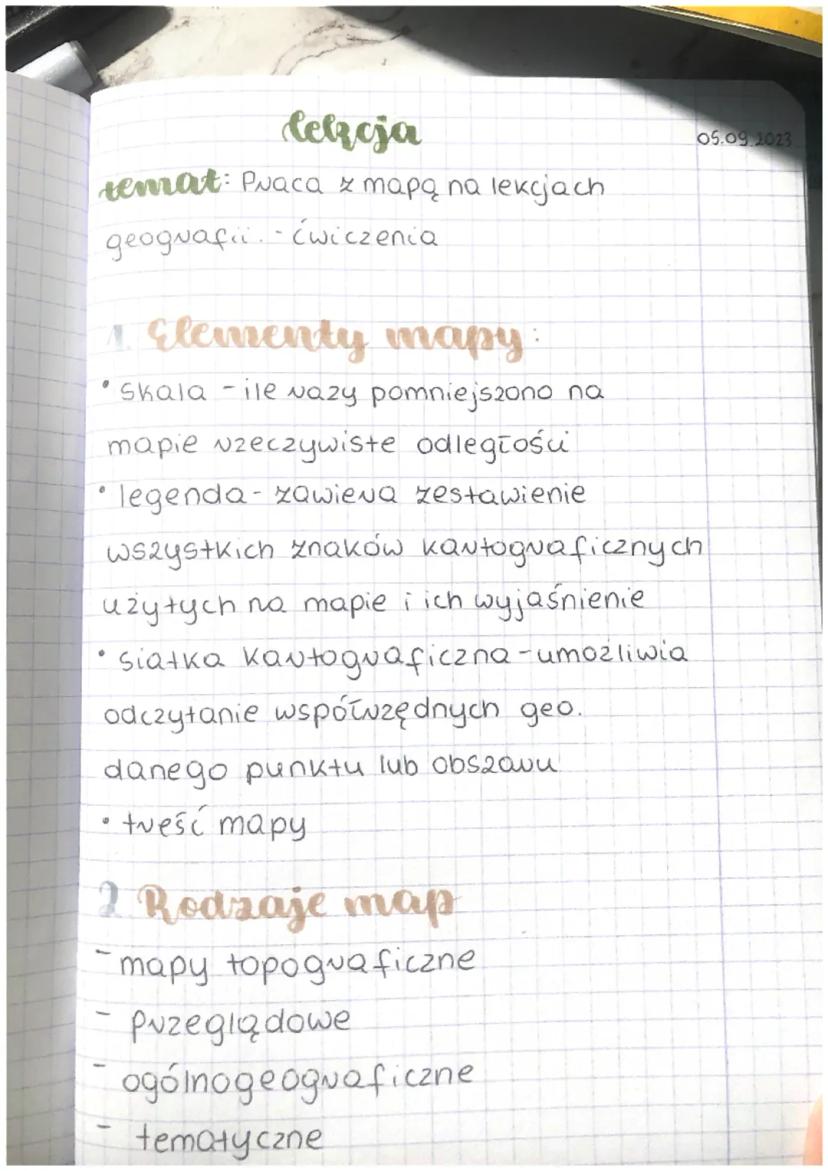 lekcja
05.09.2023
temat: Praca z mapą na lekcjach
geografii. - ćwiczenia
1. Elementy mapy:
• skala - ile razy pomniejszono na
mapie rzeczywiste odległości
• legenda - zawiera zestawienie
wszystkich znaków kartograficznych
użytych na mapie i ich wyjaśnienie
• siatka kartograficzna - umożliwia
odczytanie współrzędnych geo.
danego punktu lub obszaru
• treść mapy
2 Rodzaje map
- mapy topograficzne
- przeglądowe
- ogólnogeograficzne
- tematyczne